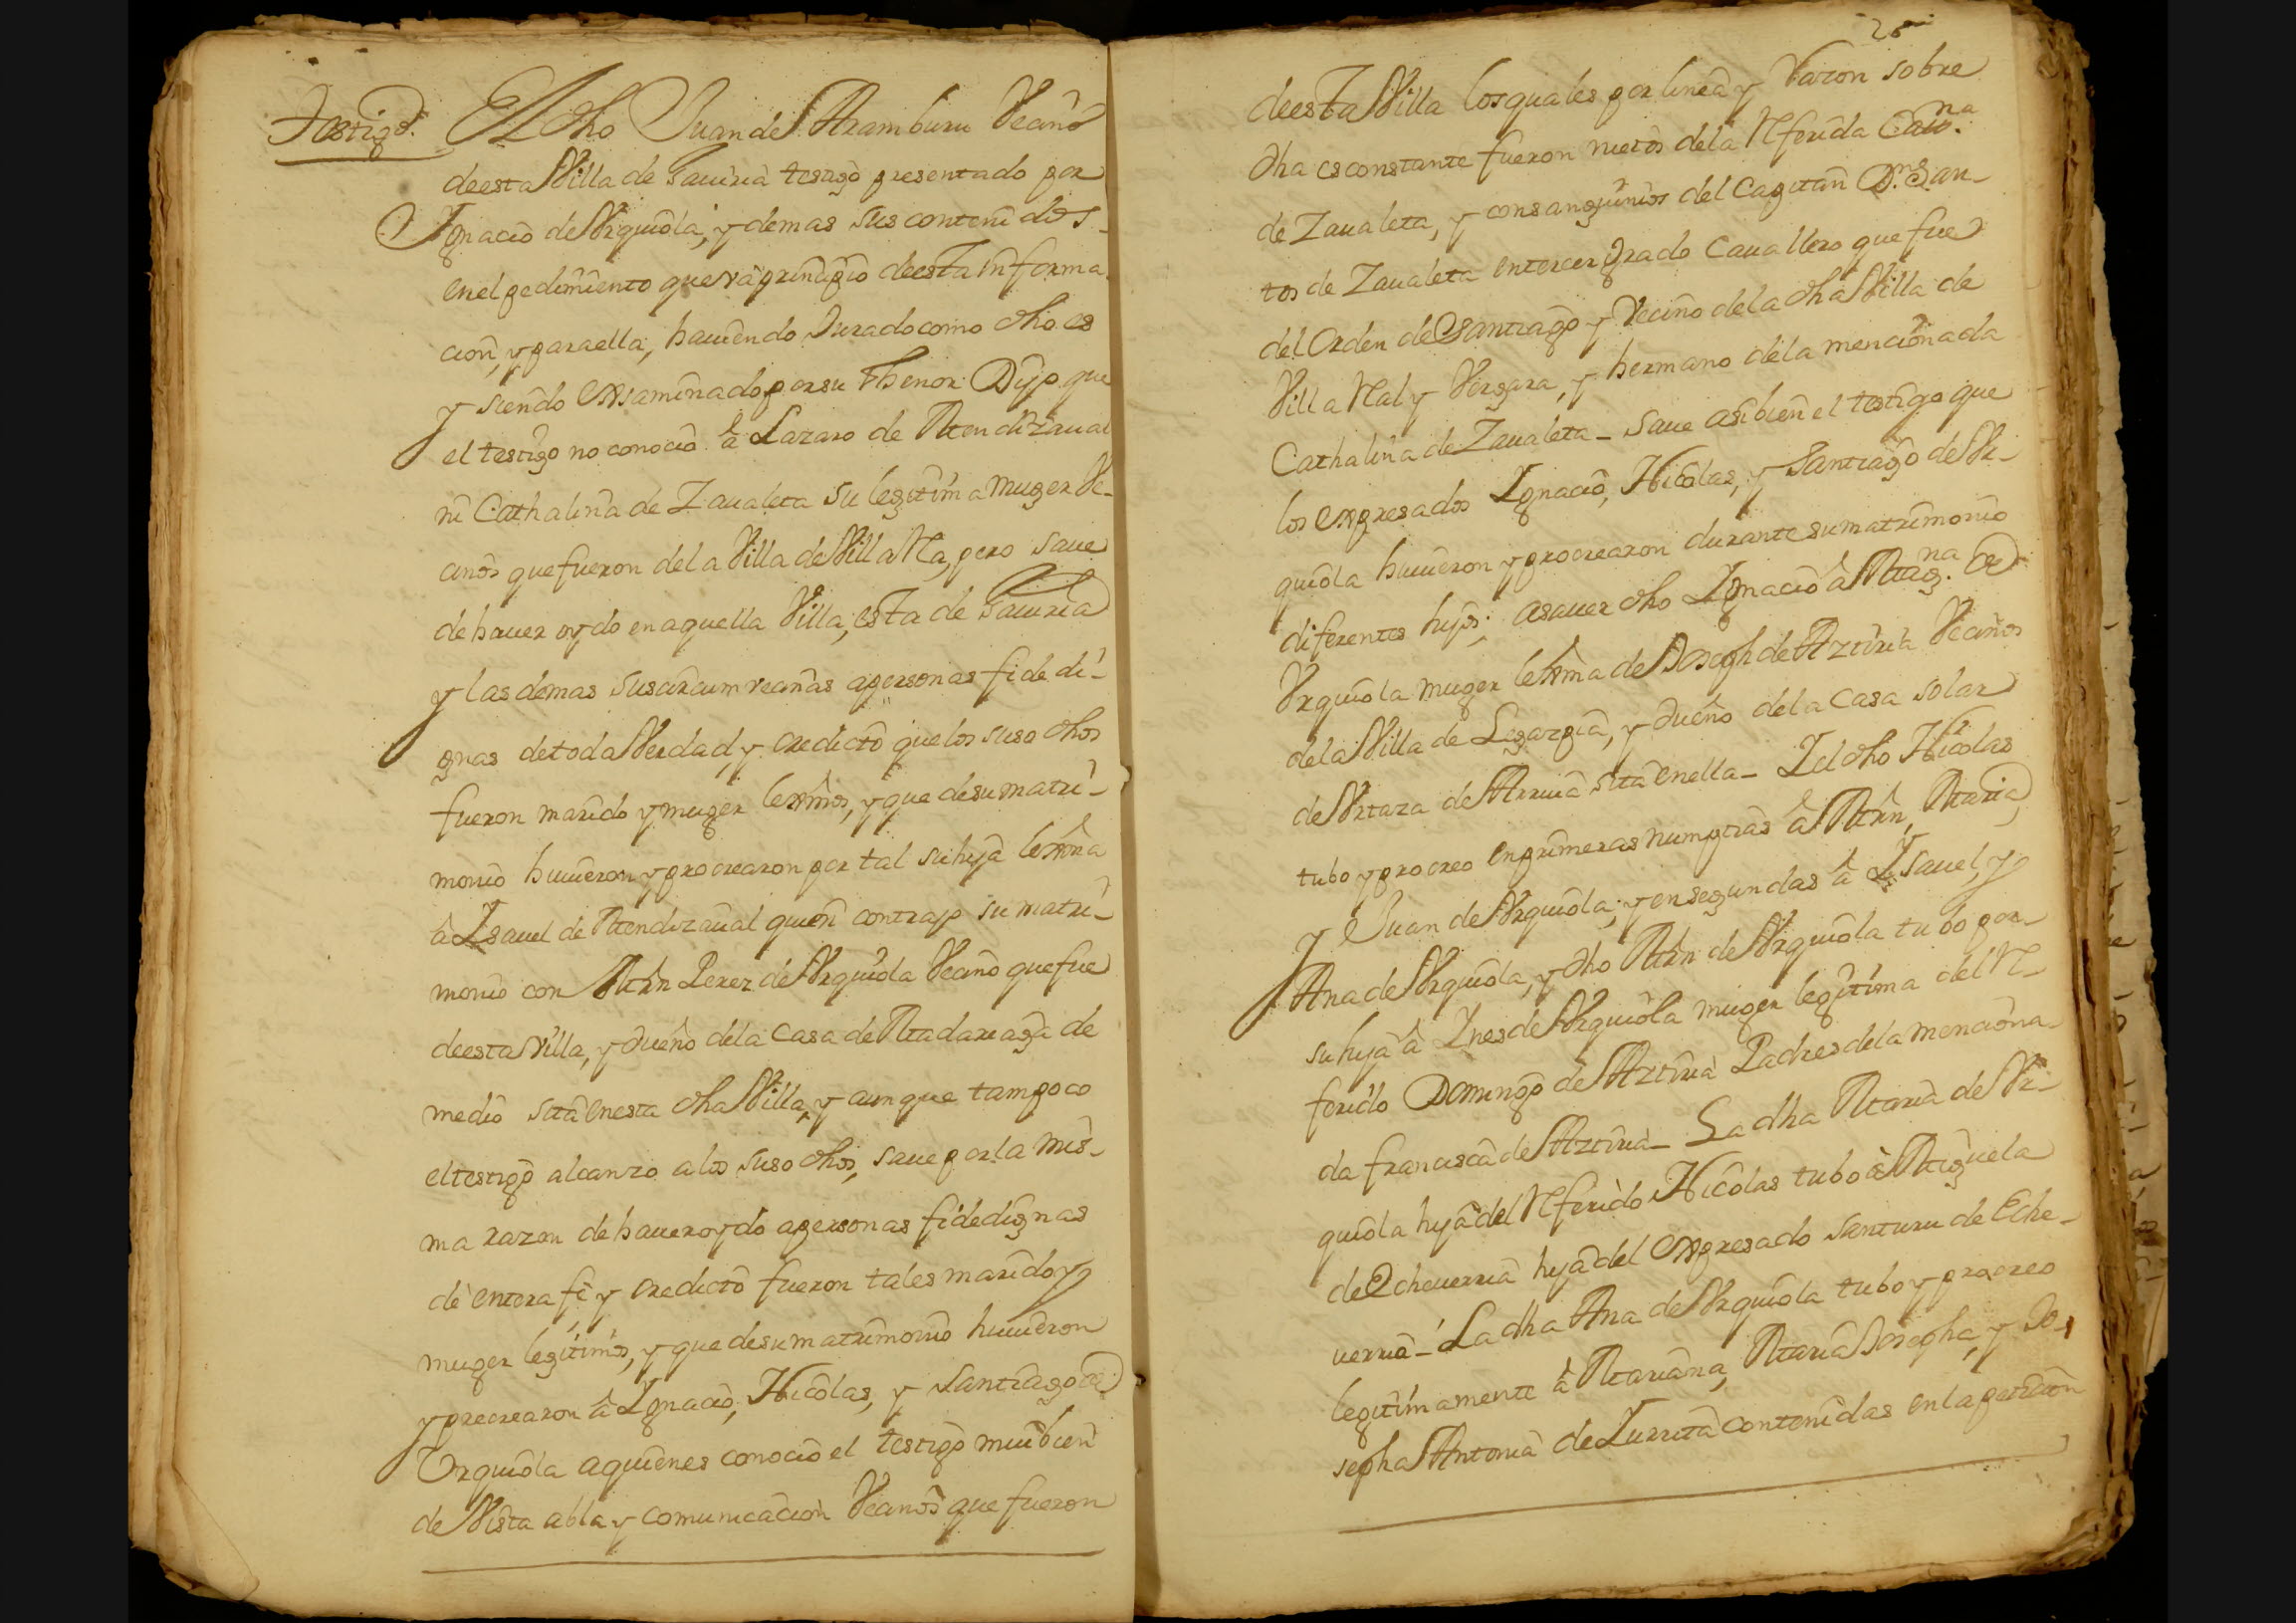 Testigo. El dho Juan de Aramburu Vecino
de esta Villa de Gauiria testigo presentado por
Ygnacio de Vrquiola, y demas sus contenidos
en el pedimiento que va prinzipio de esta informa
cion, y para ella, hauiendo Jurado como dho es
y siendo exsaminado por su thenor Dijo que
el testigo no conocio à Lazaro de Mendizaual
ni Cathalina de Zaualeta su legitima muger Ve-
cinos que fueron de la Villa de Villa Rl, pero saue
de hauer oydo en aquella Villa, esta de Gauiria
y las demas sus circumvecinas a personas fidedi-
gnas de toda Verdad, y credicto que los suso dhos
fueron marido y muger lexmos, y que de su matri-
monio huuieron y procrearon por tal su hija lexma
à Ysauel de Mendizaual quien contrajo su matri-
monio con Mrn Perez de Vrquiola Vecino que fue
de esta Villa, y dueño de la Casa de Madariaga de
medio sita en esta dha Villa, y aunque tampoco
el testigo alcanzo a los suso dhos, saue por la mis-
ma razon de hauer oydo a personas fidedignas
de entera fè y credicto fueron tales marido y
muger legitimos, y que de su matrimonio huuieron
y procrearon à Ygnacio, Nicolas, y Santiago de
Vrquiola a quienes conocio el testigo mui bien
de Vista abla y comunicacion Vecinos que fueron
de esta Villa los quales por linea y Varon sobre
dha es constante fueron nietos de la Rferida Catha.na
de Zaualeta, y consanguinios del Capitan Dn. San-
tos de Zaualeta en tercer grado Cauallero que fue
del Orden de Santiago y Vecino de la dha Villa de
Villa Real y Vergara, y hermano de la mencionada
Cathalina de Zaualeta - saue asi bien el testigo que
los expresados Ygnacio, Nicolas, y Santiago de Vr-
quiola huuieron y procrearon durante su matrimonio
diferentes hijos; asauer dho Ygnacio à Mag.na de
Vrquiola muger lexma de Joseph de Aztiria Vecinos
de la Villa de Legazpia, y dueño de la Casa solar
de Vrtaza de Arriua sita en ella - Y el dho Nicolas
tubo y procreo en primeras numpcias à Mrn, Maria,
y Juan de Vrquiola; y en segundas à Ysauel, y
Ana de Vrquiola, y dho Mrn de Vrquiola tubo por
su hija à Ynes de Vrquiola muger legitima del R-
ferido Domingo de Aztiria Padres de la menciona-
da francisca de Aztiria - La dha Maria de Vr-
quiola hija del Rferido Nicolas tubo à Miguela
de Echeuerria hija del expresado Santuru de Eche-
uerria - La dha Ana de Vrquiola tubo y procreo
legitimamente à Mariana, Maria Josepha, y Jo-
sepha Antonia de Zurrita contenidas en la peticion